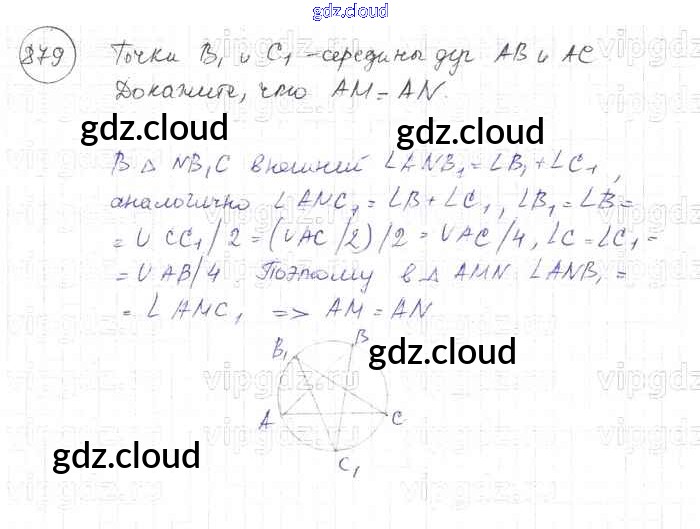 gdz.cloud
879 Точки B₁ и C₁ – середины дуг AB и AC
Докажите, что AM = AN.
gdz.cloud gdz.cloud
В △ NB₁C внешний ∠ANB₁ = ∠B₁ + ∠C₁,
аналогично ∠ANC₁ = ∠B + ∠C₁, ∠B₁ = ∠B =
= ∪ CC₁/2 = (∪AC/2)/2 = ∪AC/4, ∠C = ∠C₁ =
= ∪AB/4. Поэтому в △ AMN ∠ANB₁ =
= ∠AMC₁ => AM = AN
B₁ B
gdz.cloud
A C
gdz.cloud
C₁
gdz.cloud